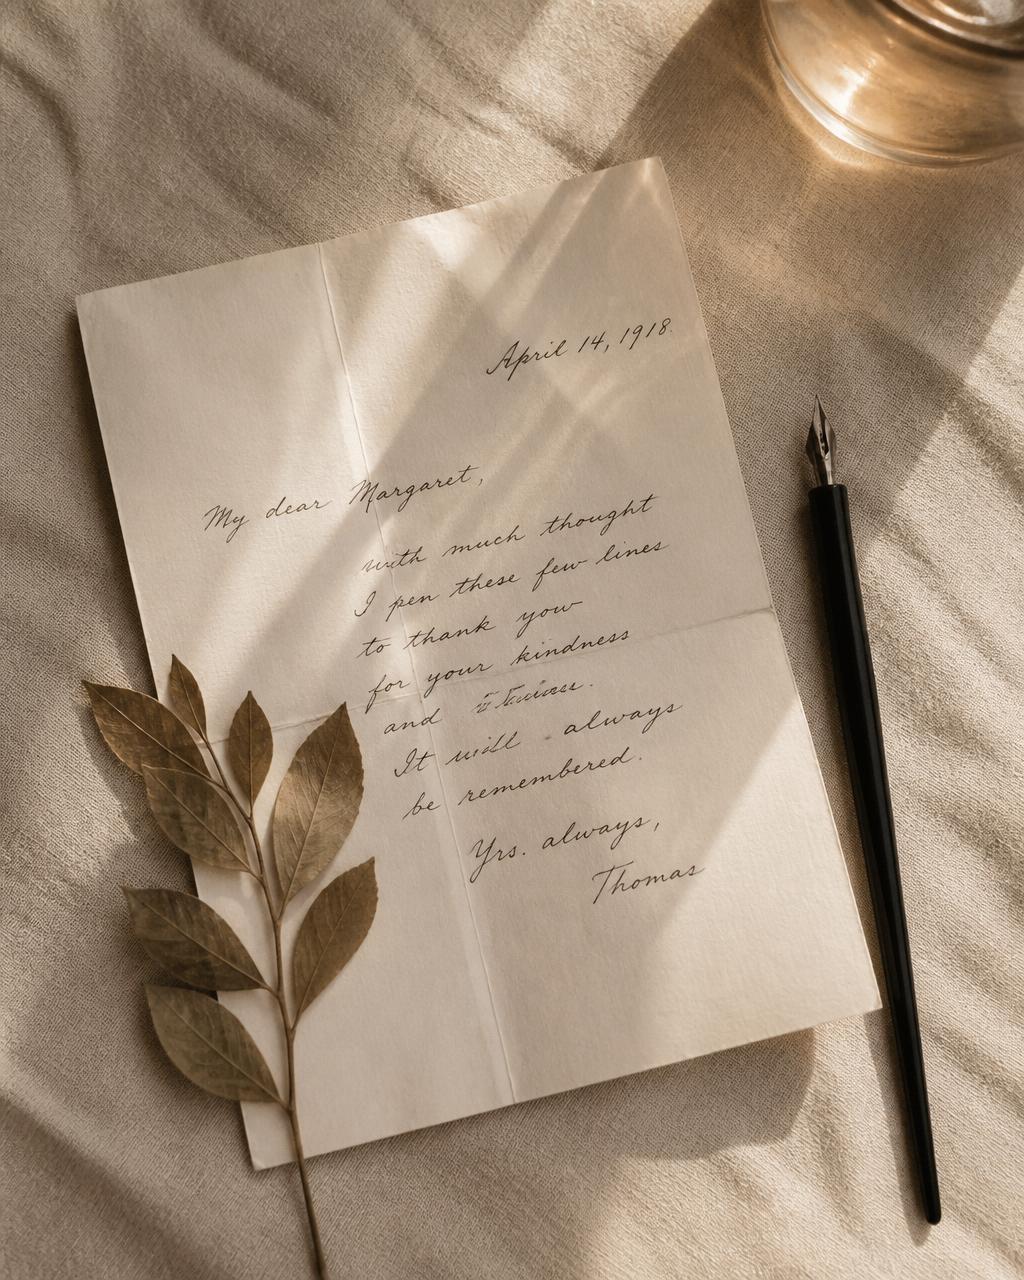 April 14, 1918.
My dear Margaret,
with much thought
I pen these few lines
to thank you
for your kindness
and
It will always
be remembered.
Yrs. always,
Thomas